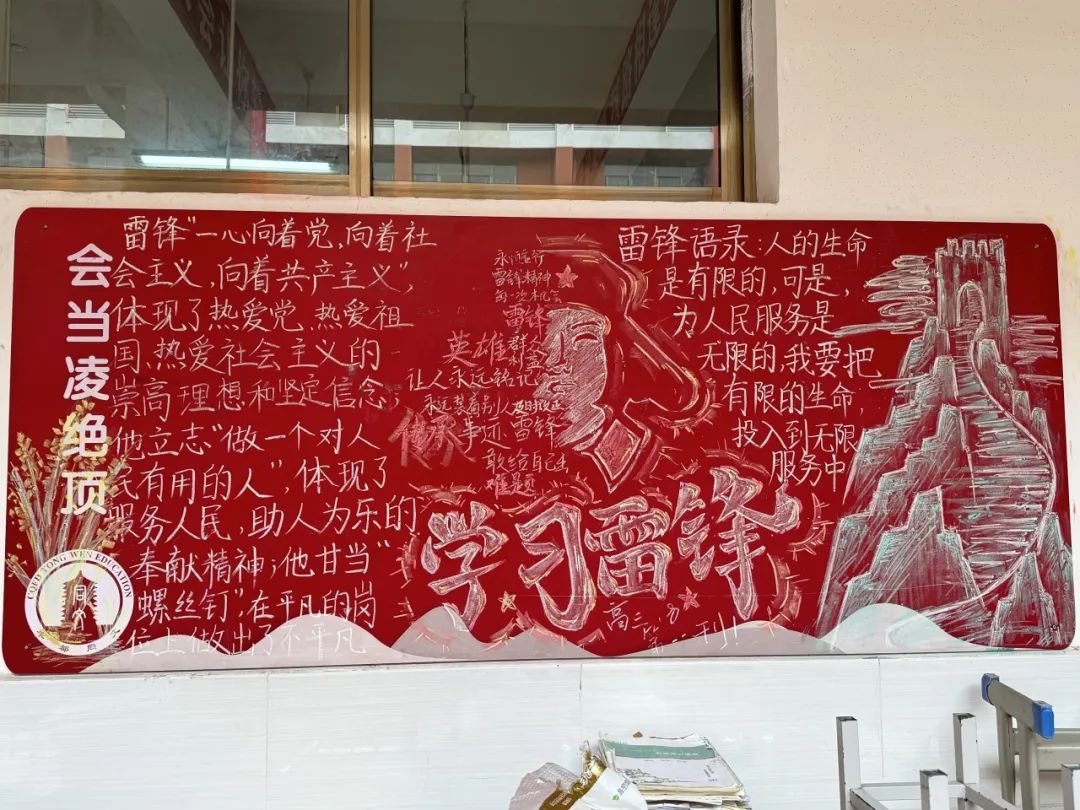 会当凌绝顶
雷锋"一心向着党,向着社
会主义,向着共产主义",
体现了热爱党,热爱祖
国、热爱社会主义的
崇高理想和坚定信念;
他立志"做一个对人
民有用的人",体现了
服务人民,助人为乐的
奉献精神;他甘当"
螺丝钉"在平凡的岗
位上做出了不平凡
雷锋精神
雷锋
英雄
让人永远铭记
传承
雷锋
敢给自己
难题
学习雷锋
高三
刊!
雷锋语录:人的生命
是有限的,可是,
为人民服务是
无限的,我要把
有限的生命,
投入到无限
服务中
WEN EDUCATION